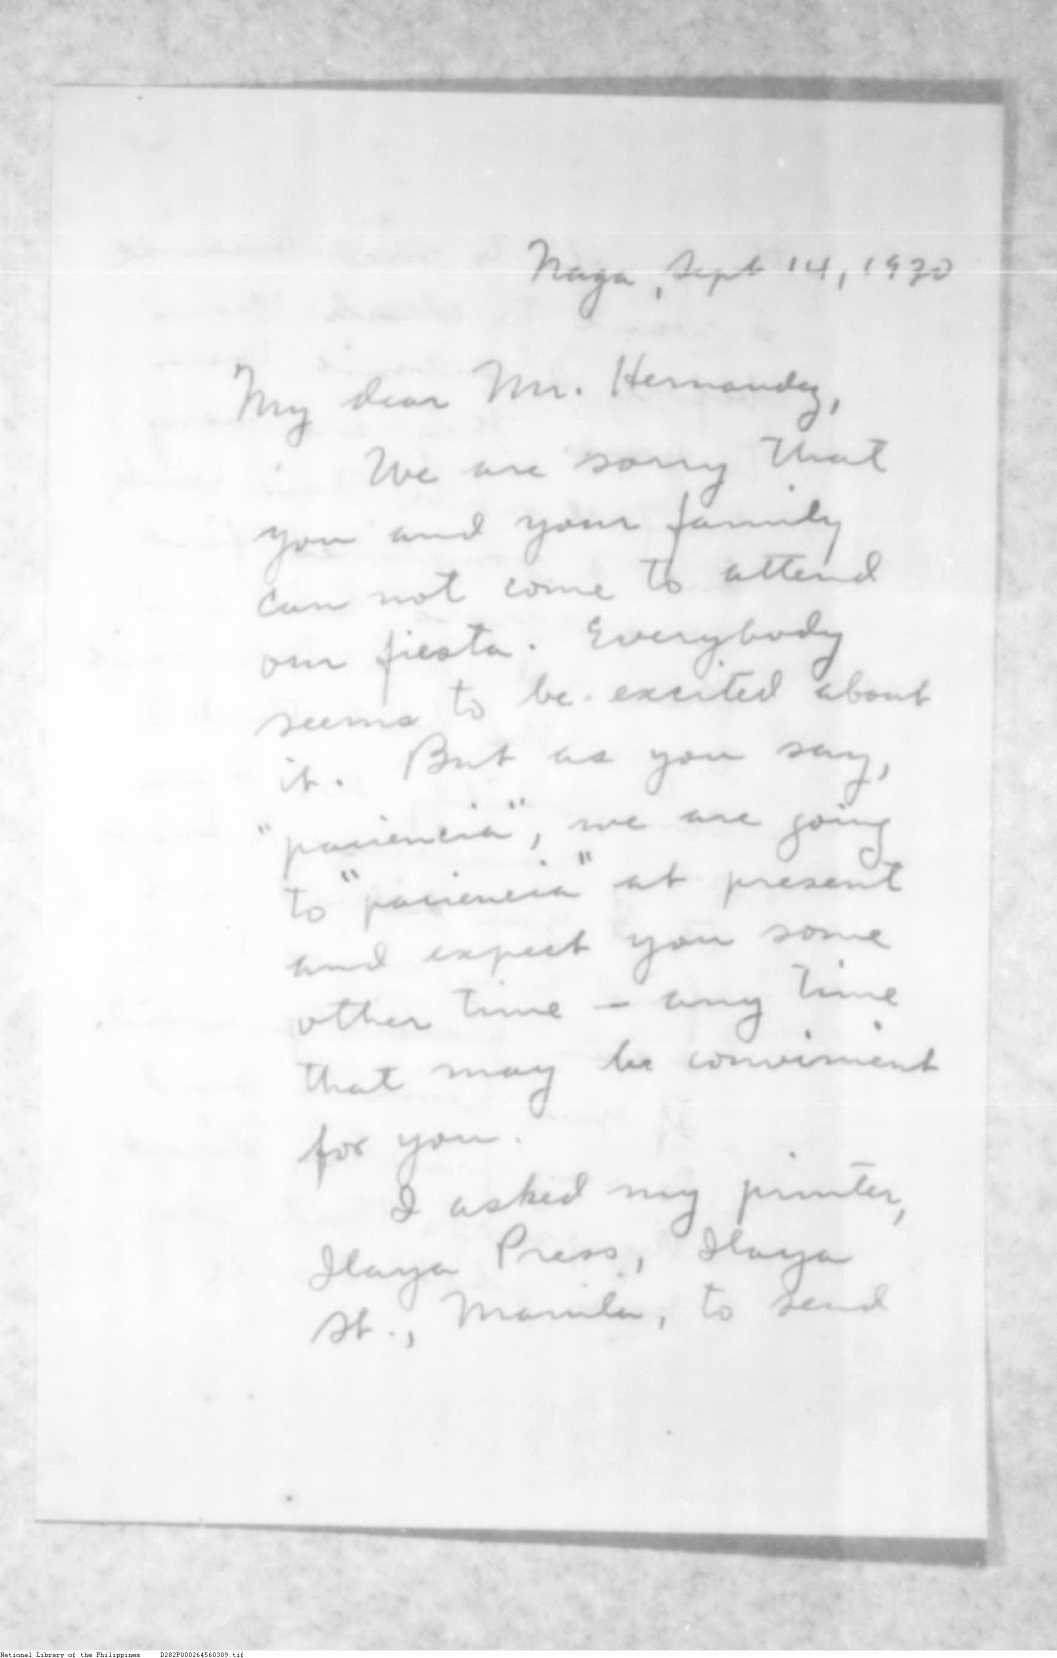 Naga, Sept 14, 1930
My dear Mr. Hernandez,
We are sorry that
you and your family
can not come to attend
our fiesta. Everybody
seems to be excited about
it. But as you say,
"paciencia", we are going
to "paciencia" at present
and expect you some
other time — any time
that may be convenient
for you.
I asked my printer,
Ilaya Press, Ilaya
St., Manila, to send
National Library of the Philippines D282P000264560309.tif